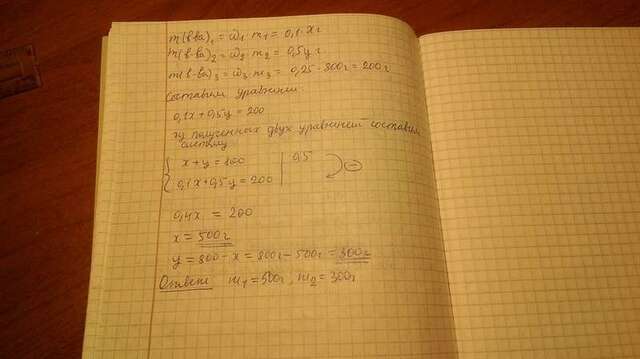 m(в-ва)₁ = ω₁ · m₁ = 0,1 · x г
m(в-ва)₂ = ω₂ · m₂ = 0,5y г
m(в-ва)₃ = ω₃ · m₃ = 0,25 · 800 г = 200 г
Составим уравнение:
0,1x + 0,5y = 200
из полученных двух уравнений составим
систему
x + y = 800 | 0,5
0,1x + 0,5y = 200 | −
0,4x = 200
x = 500 г
y = 800 − x = 800 г − 500 г = 300 г
Ответ: m₁ = 500 г, m₂ = 300 г